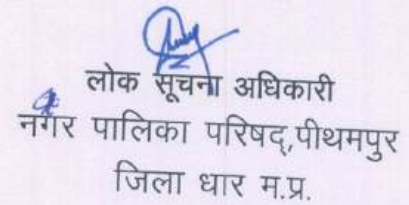 लोक सूचना अधिकारी
नगर पालिका परिषद्,पीथमपुर
जिला धार म.प्र.